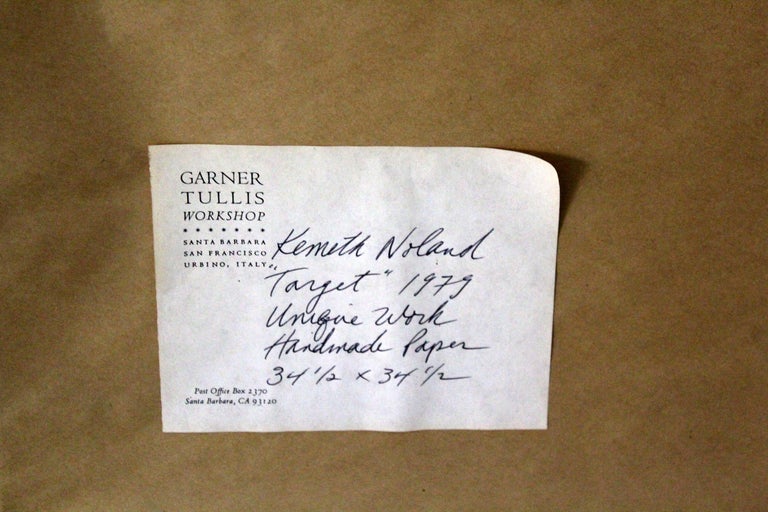 GARNER
TULLIS
WORKSHOP
* * * * * * *
SANTA BARBARA
SAN FRANCISCO
URBINO, ITALY
Kenneth Noland
"Target" 1979
Unique Work
Handmade Paper
34 1/2 x 34 1/2
Post Office Box 2370
Santa Barbara, CA 93120